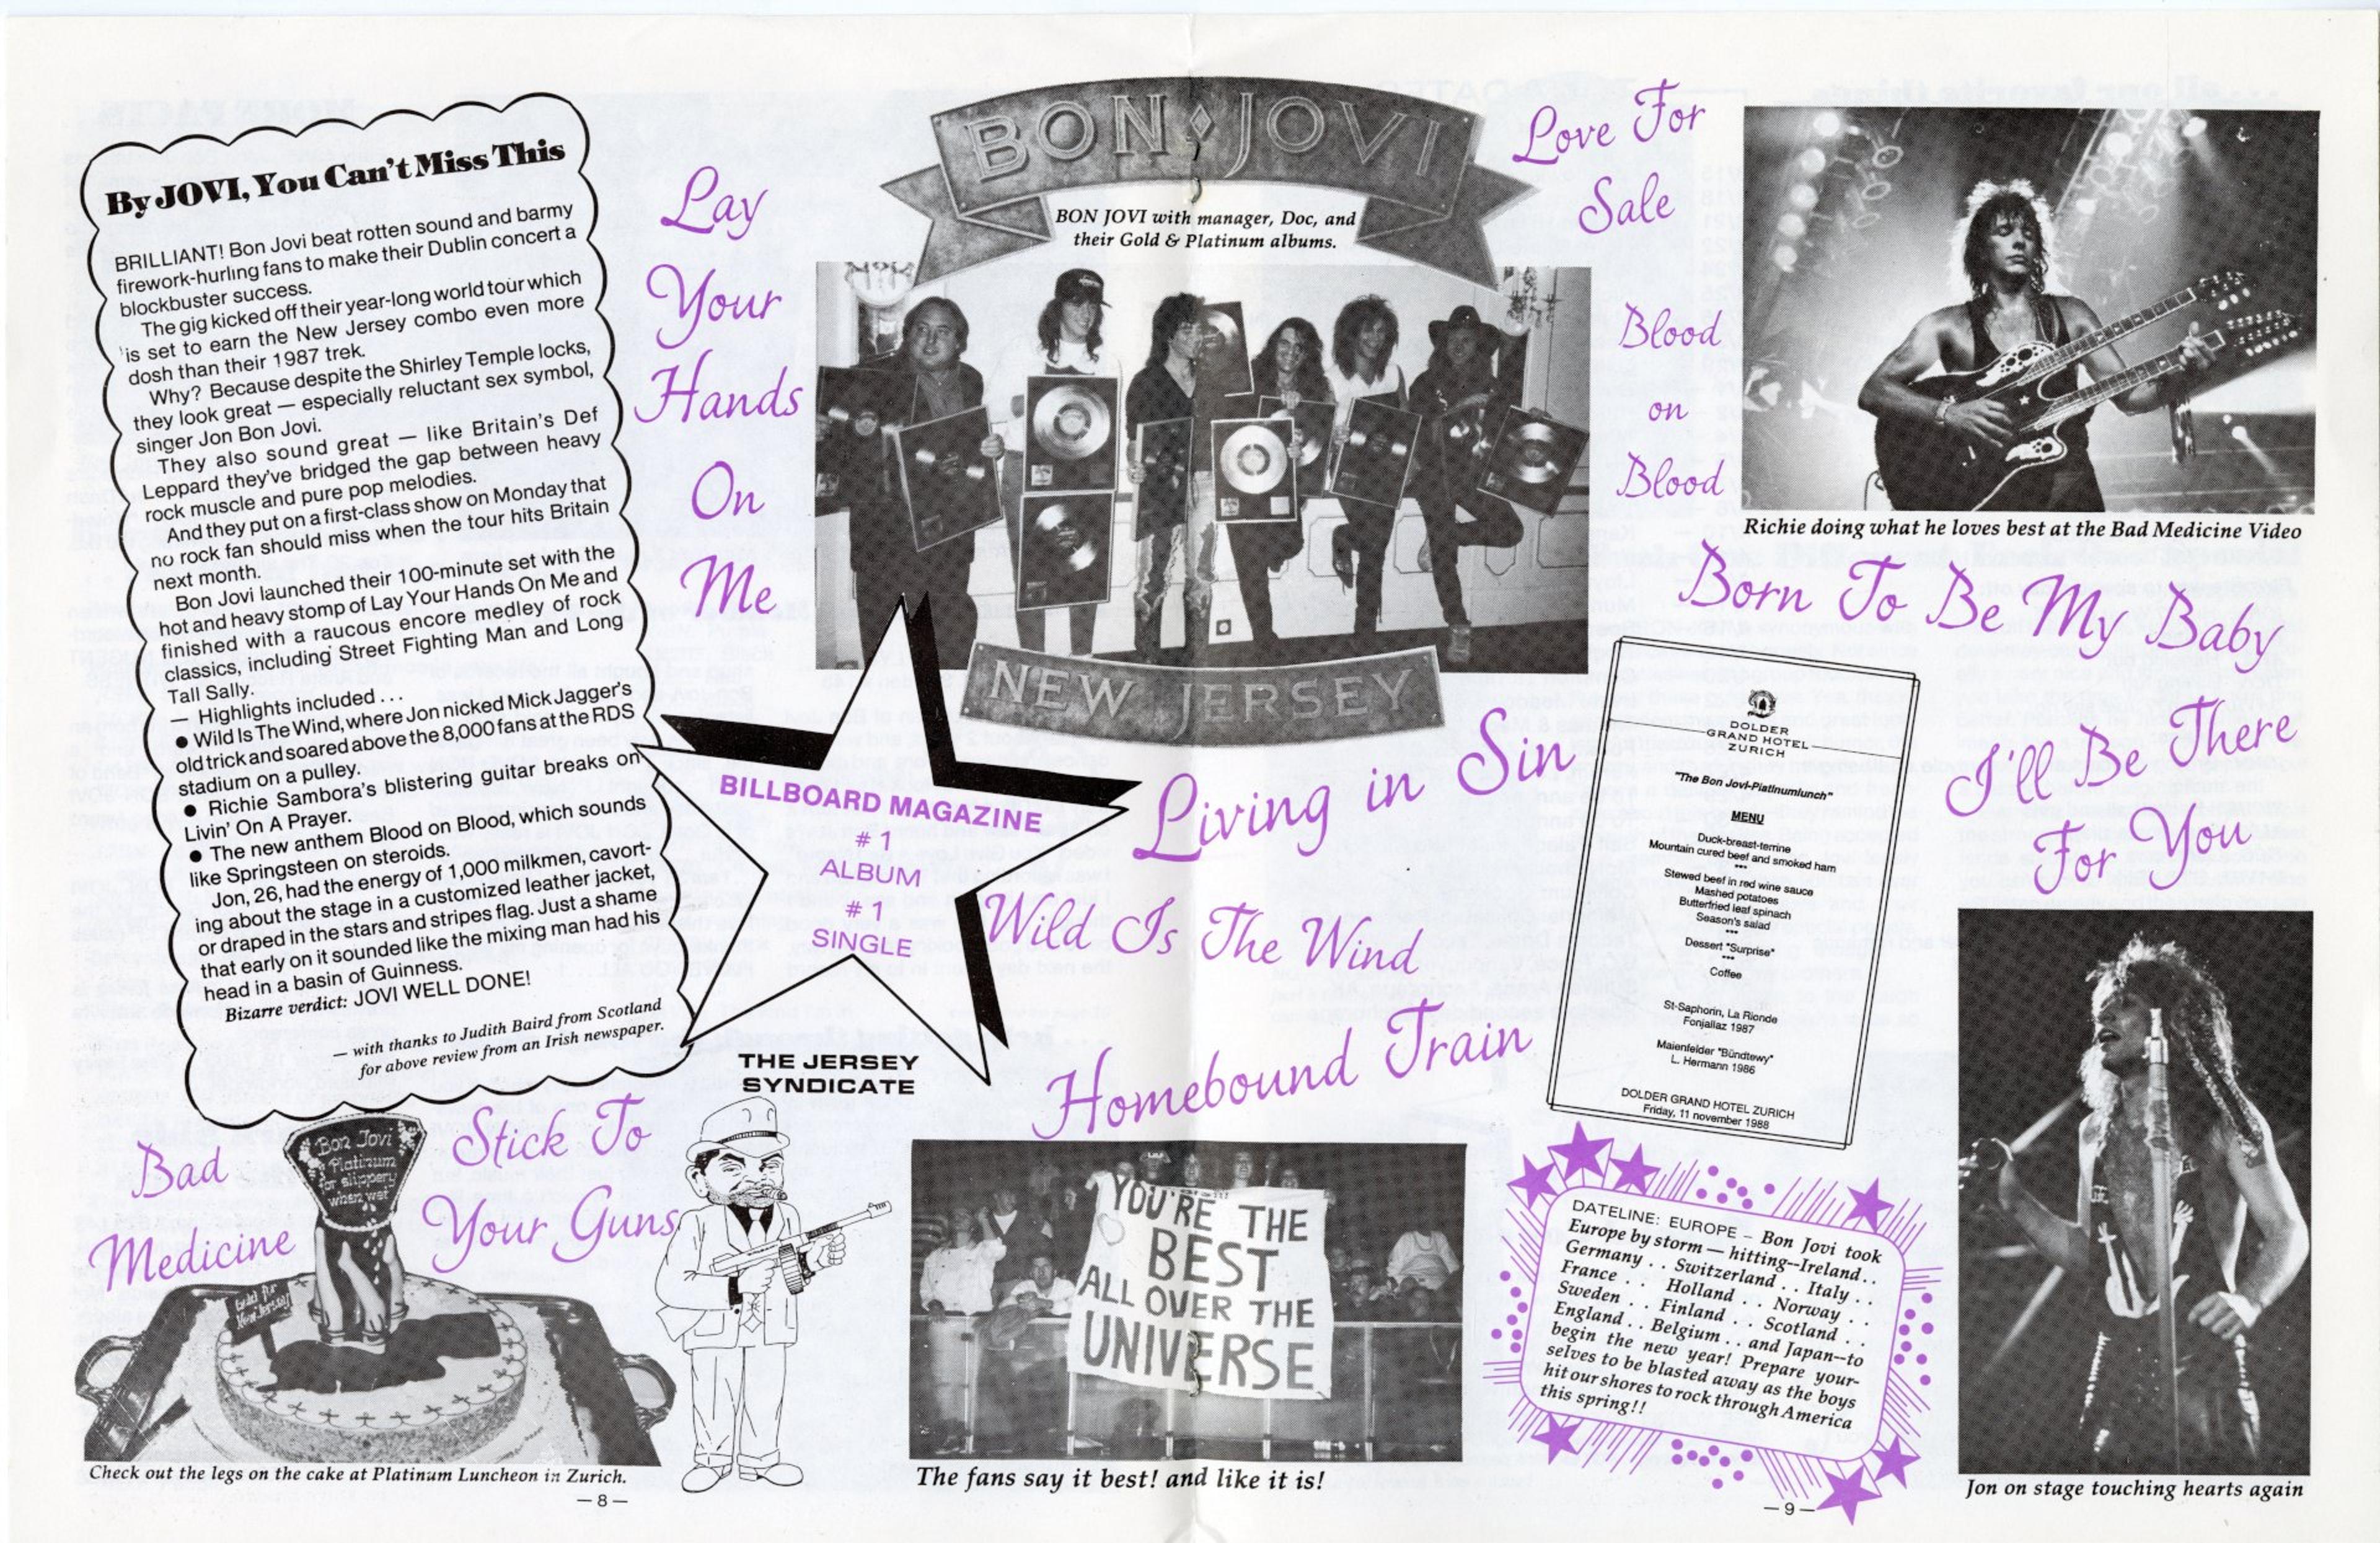 By JOVI, You Can't Miss This
BRILLIANT! Bon Jovi beat rotten sound and barmy
firework-hurling fans to make their Dublin concert a
blockbuster success.
The gig kicked off their year-long world tour which
is set to earn the New Jersey combo even more
dosh than their 1987 trek.
Why? Because despite the Shirley Temple locks,
they look great — especially reluctant sex symbol,
singer Jon Bon Jovi.
They also sound great — like Britain's Def
Leppard they've bridged the gap between heavy
rock muscle and pure pop melodies.
And they put on a first-class show on Monday that
no rock fan should miss when the tour hits Britain
next month.
Bon Jovi launched their 100-minute set with the
hot and heavy stomp of Lay Your Hands On Me and
finished with a raucous encore medley of rock
classics, including Street Fighting Man and Long
Tall Sally.
— Highlights included . . .
● Wild Is The Wind, where Jon nicked Mick Jagger's
old trick and soared above the 8,000 fans at the RDS
stadium on a pulley.
● Richie Sambora's blistering guitar breaks on
Livin' On A Prayer.
● The new anthem Blood on Blood, which sounds
like Springsteen on steroids.
Jon, 26, had the energy of 1,000 milkmen, cavort-
ing about the stage in a customized leather jacket,
or draped in the stars and stripes flag. Just a shame
that early on it sounded like the mixing man had his
head in a basin of Guinness.
Bizarre verdict: JOVI WELL DONE!
— with thanks to Judith Baird from Scotland
for above review from an Irish newspaper.
Lay
Your
Hands
On
Me
BON JOVI
BON JOVI with manager, Doc, and
their Gold & Platinum albums.
NEW JERSEY
BILLBOARD MAGAZINE
# 1
ALBUM
# 1
SINGLE
THE JERSEY
SYNDICATE
Bad
Medicine
Stick To
Your Guns
Bon Jovi
Platinum
for slippery
when wet
Gold for
New Jersey
Check out the legs on the cake at Platinum Luncheon in Zurich.
— 8 —
Love For
Sale
Blood
on
Blood
Richie doing what he loves best at the Bad Medicine Video
Born To Be My Baby
I'll Be There
For You
Living in Sin
Wild Is The Wind
Homebound Train
DOLDER
GRAND HOTEL
ZURICH
"The Bon Jovi-Platinumlunch"
MENU
Duck-breast-terrine
Mountain cured beef and smoked ham
***
Stewed beef in red wine sauce
Mashed potatoes
Butterfried leaf spinach
Season's salad
***
Dessert "Surprise"
***
Coffee
St-Saphorin, La Rionde
Fonjallaz 1987
Maienfelder "Bündtewy"
L. Hermann 1986
DOLDER GRAND HOTEL ZURICH
Friday, 11 november 1988
YOU'RE THE
BEST
ALL OVER THE
UNIVERSE
The fans say it best! and like it is!
DATELINE: EUROPE – Bon Jovi took
Europe by storm — hitting--Ireland . .
Germany . . Switzerland . . Italy . .
France . . Holland . . Norway . .
Sweden . . Finland . . Scotland . .
England . . Belgium . . and Japan--to
begin the new year! Prepare your-
selves to be blasted away as the boys
hit our shores to rock through America
this spring!!
Jon on stage touching hearts again
— 9 —